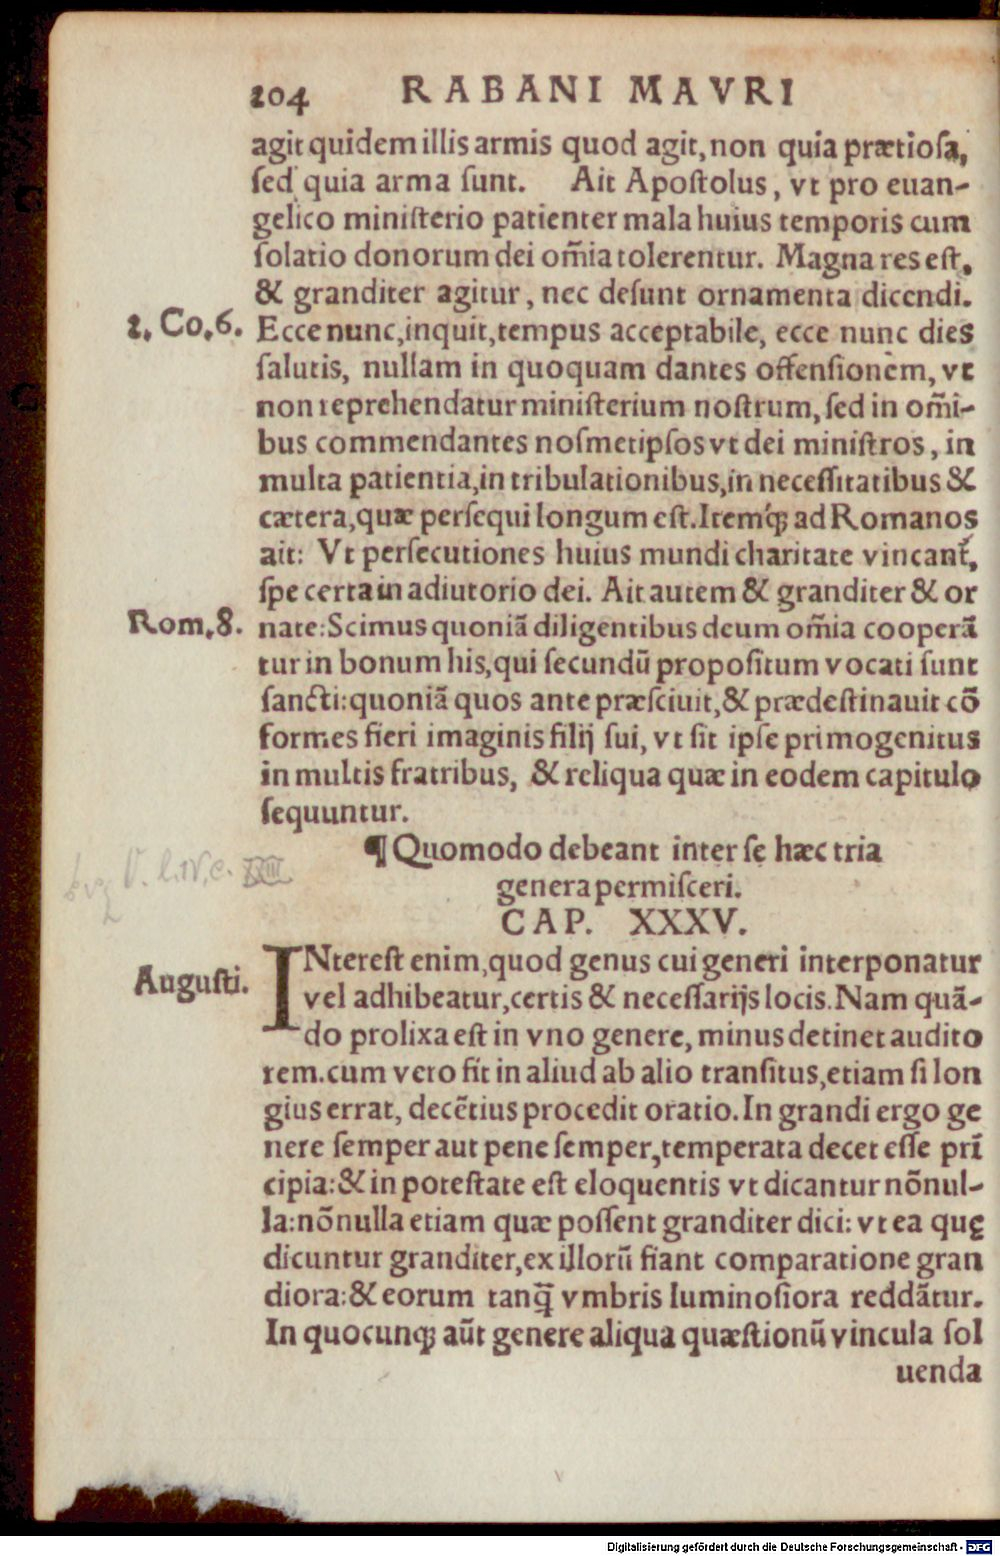 204 RABANI MAVRI
agit quidem illis armis quod agit, non quia prætiosa,
sed quia arma sunt. Ait Apostolus, vt pro euan-
gelico ministerio patienter mala huius temporis cum
solatio donorum dei om̄ia tolerentur. Magna res est,
& granditer agitur, nec desunt ornamenta dicendi.
2. Co. 6. Ecce nunc, inquit, tempus acceptabile, ecce nunc dies
salutis, nullam in quoquam dantes offensionem, vt
non reprehendatur ministerium nostrum, sed in om̄i-
bus commendantes nosmetipsos vt dei ministros, in
multa patientia, in tribulationibus, in necessitatibus &
cætera, quæ persequi longum est. Itemq́ꝫ ad Romanos
ait: Vt persecutiones huius mundi charitate vincant̃,
spe certa in adiutorio dei. Ait autem & granditer & or
Rom. 8. nate: Scimus quoniã diligentibus deum om̄ia cooperã
tur in bonum his, qui secundũ propositum vocati sunt
sancti: quoniã quos ante præsciuit, & prædestinauit cõ
formes fieri imaginis filij sui, vt sit ipse primogenitus
in multis fratribus, & reliqua quæ in eodem capitulo
sequuntur.
¶ Quomodo debeant inter se hæc tria
genera permisceri.
CAP. XXXV.
Augusti. INterest enim, quod genus cui generi interponatur
vel adhibeatur, certis & necessarijs locis. Nam quã-
do prolixa est in vno genere, minus detinet audito
rem. cum vero fit in aliud ab alio transitus, etiam si lon
gius errat, decẽtius procedit oratio. In grandi ergo ge
nere semper aut pene semper, temperata decet esse prĩ
cipia: & in potestate est eloquentis vt dicantur nõnul-
la: nõnulla etiam quæ possent granditer dici: vt ea quę
dicuntur granditer, ex illorũ fiant comparatione gran
diora: & eorum tanq̃ vmbris luminosiora reddãtur.
In quocunqꝫ aũt genere aliqua quæstionũ vincula sol
uenda
Digitalisierung gefördert durch die Deutsche Forschungsgemeinschaft - DFG